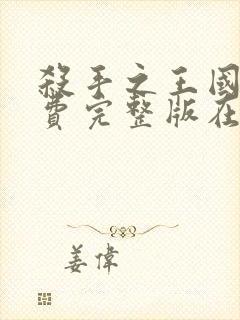 殺手之王國
費完整版在
姜偉